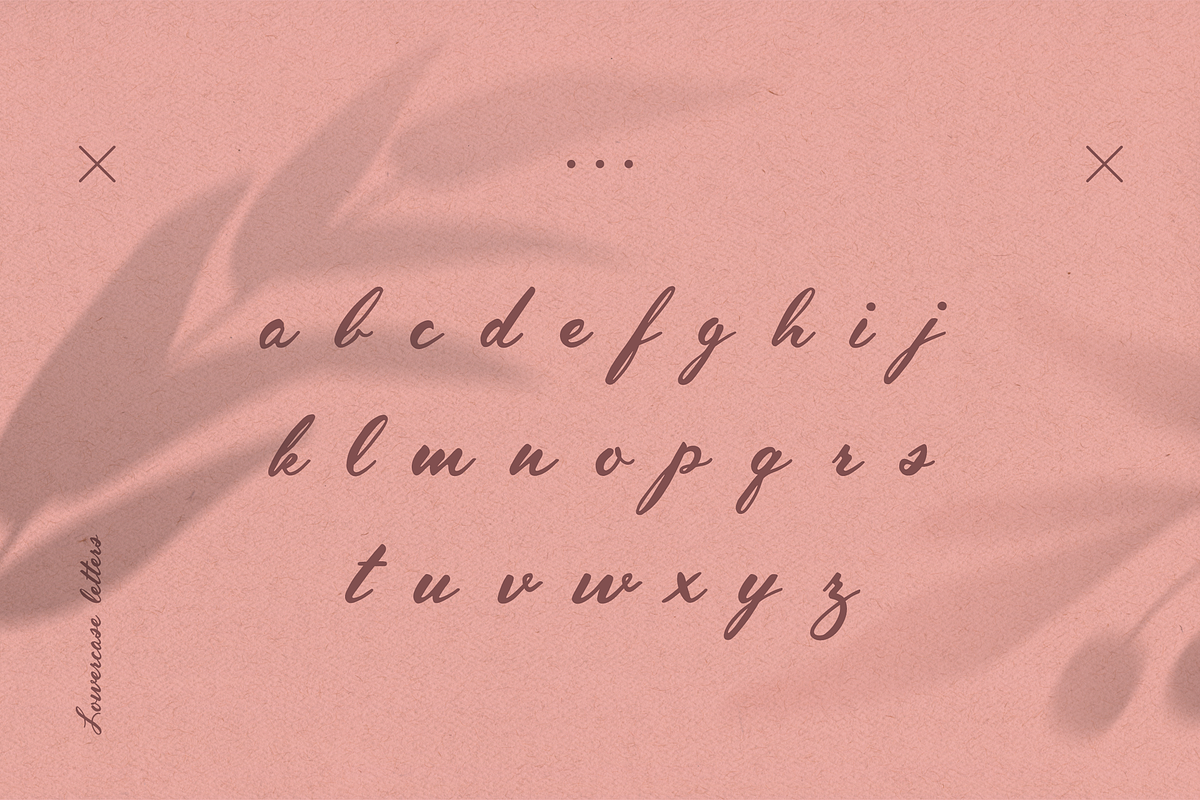 a b c d e f g h i j
k l m n o p q r s
t u v w x y z
Lowercase letters